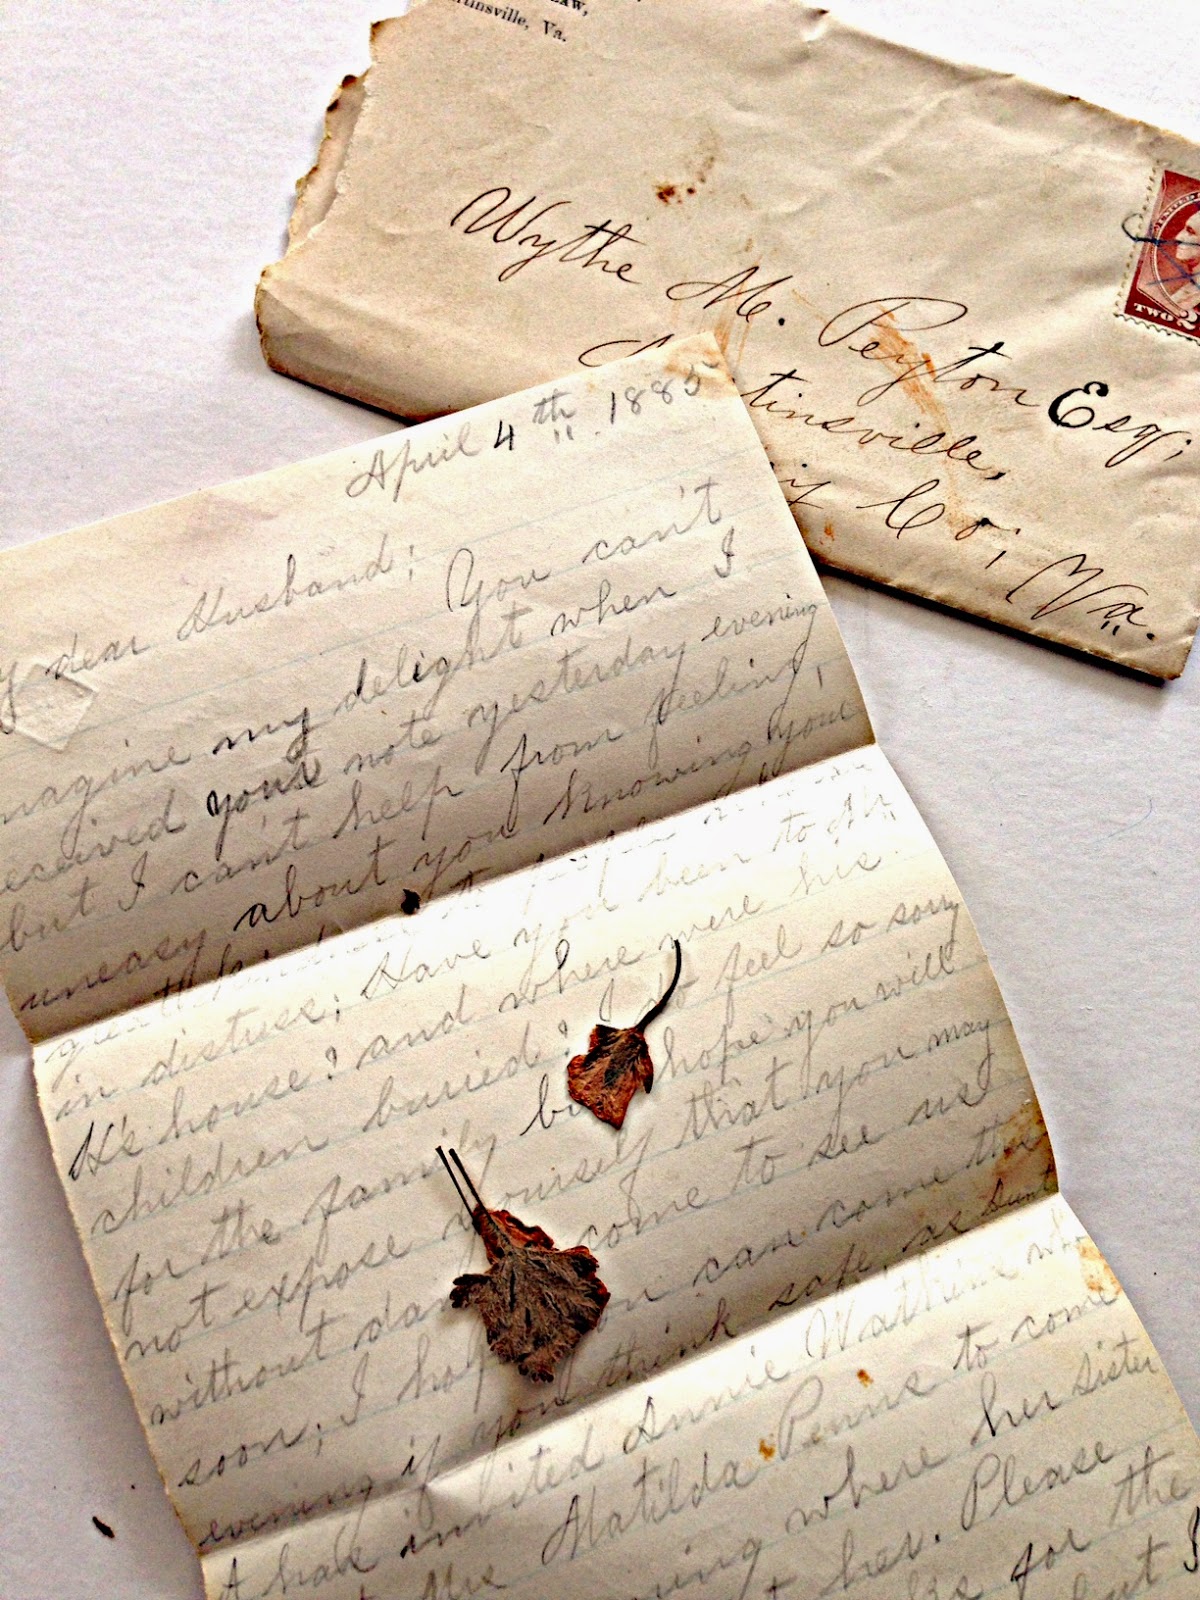 LAW,
rtinsville, Va.
Wythe M. Peyton Esq;
tinsville,
Co; Va.
UNITED
TWO 2
April 4th 1885
y dear Husband; You can't
magine my delight when I
eceived your note yesterday evening
but I can't help from feeling,
uneasy about you knowing your
great kindness to people
in distress; Have you been to Mr
H's house? and where were his
children buried? I do feel so sorry
for the family bu hope you will
not expose yourself that you may
without dan come to see us
soon; I hop can come this
evening if you think safe, as Aunt
A has invited Annie Watkins who
Mrs Matilda Penns to come
ing where her sister
her. Please
for the
but I